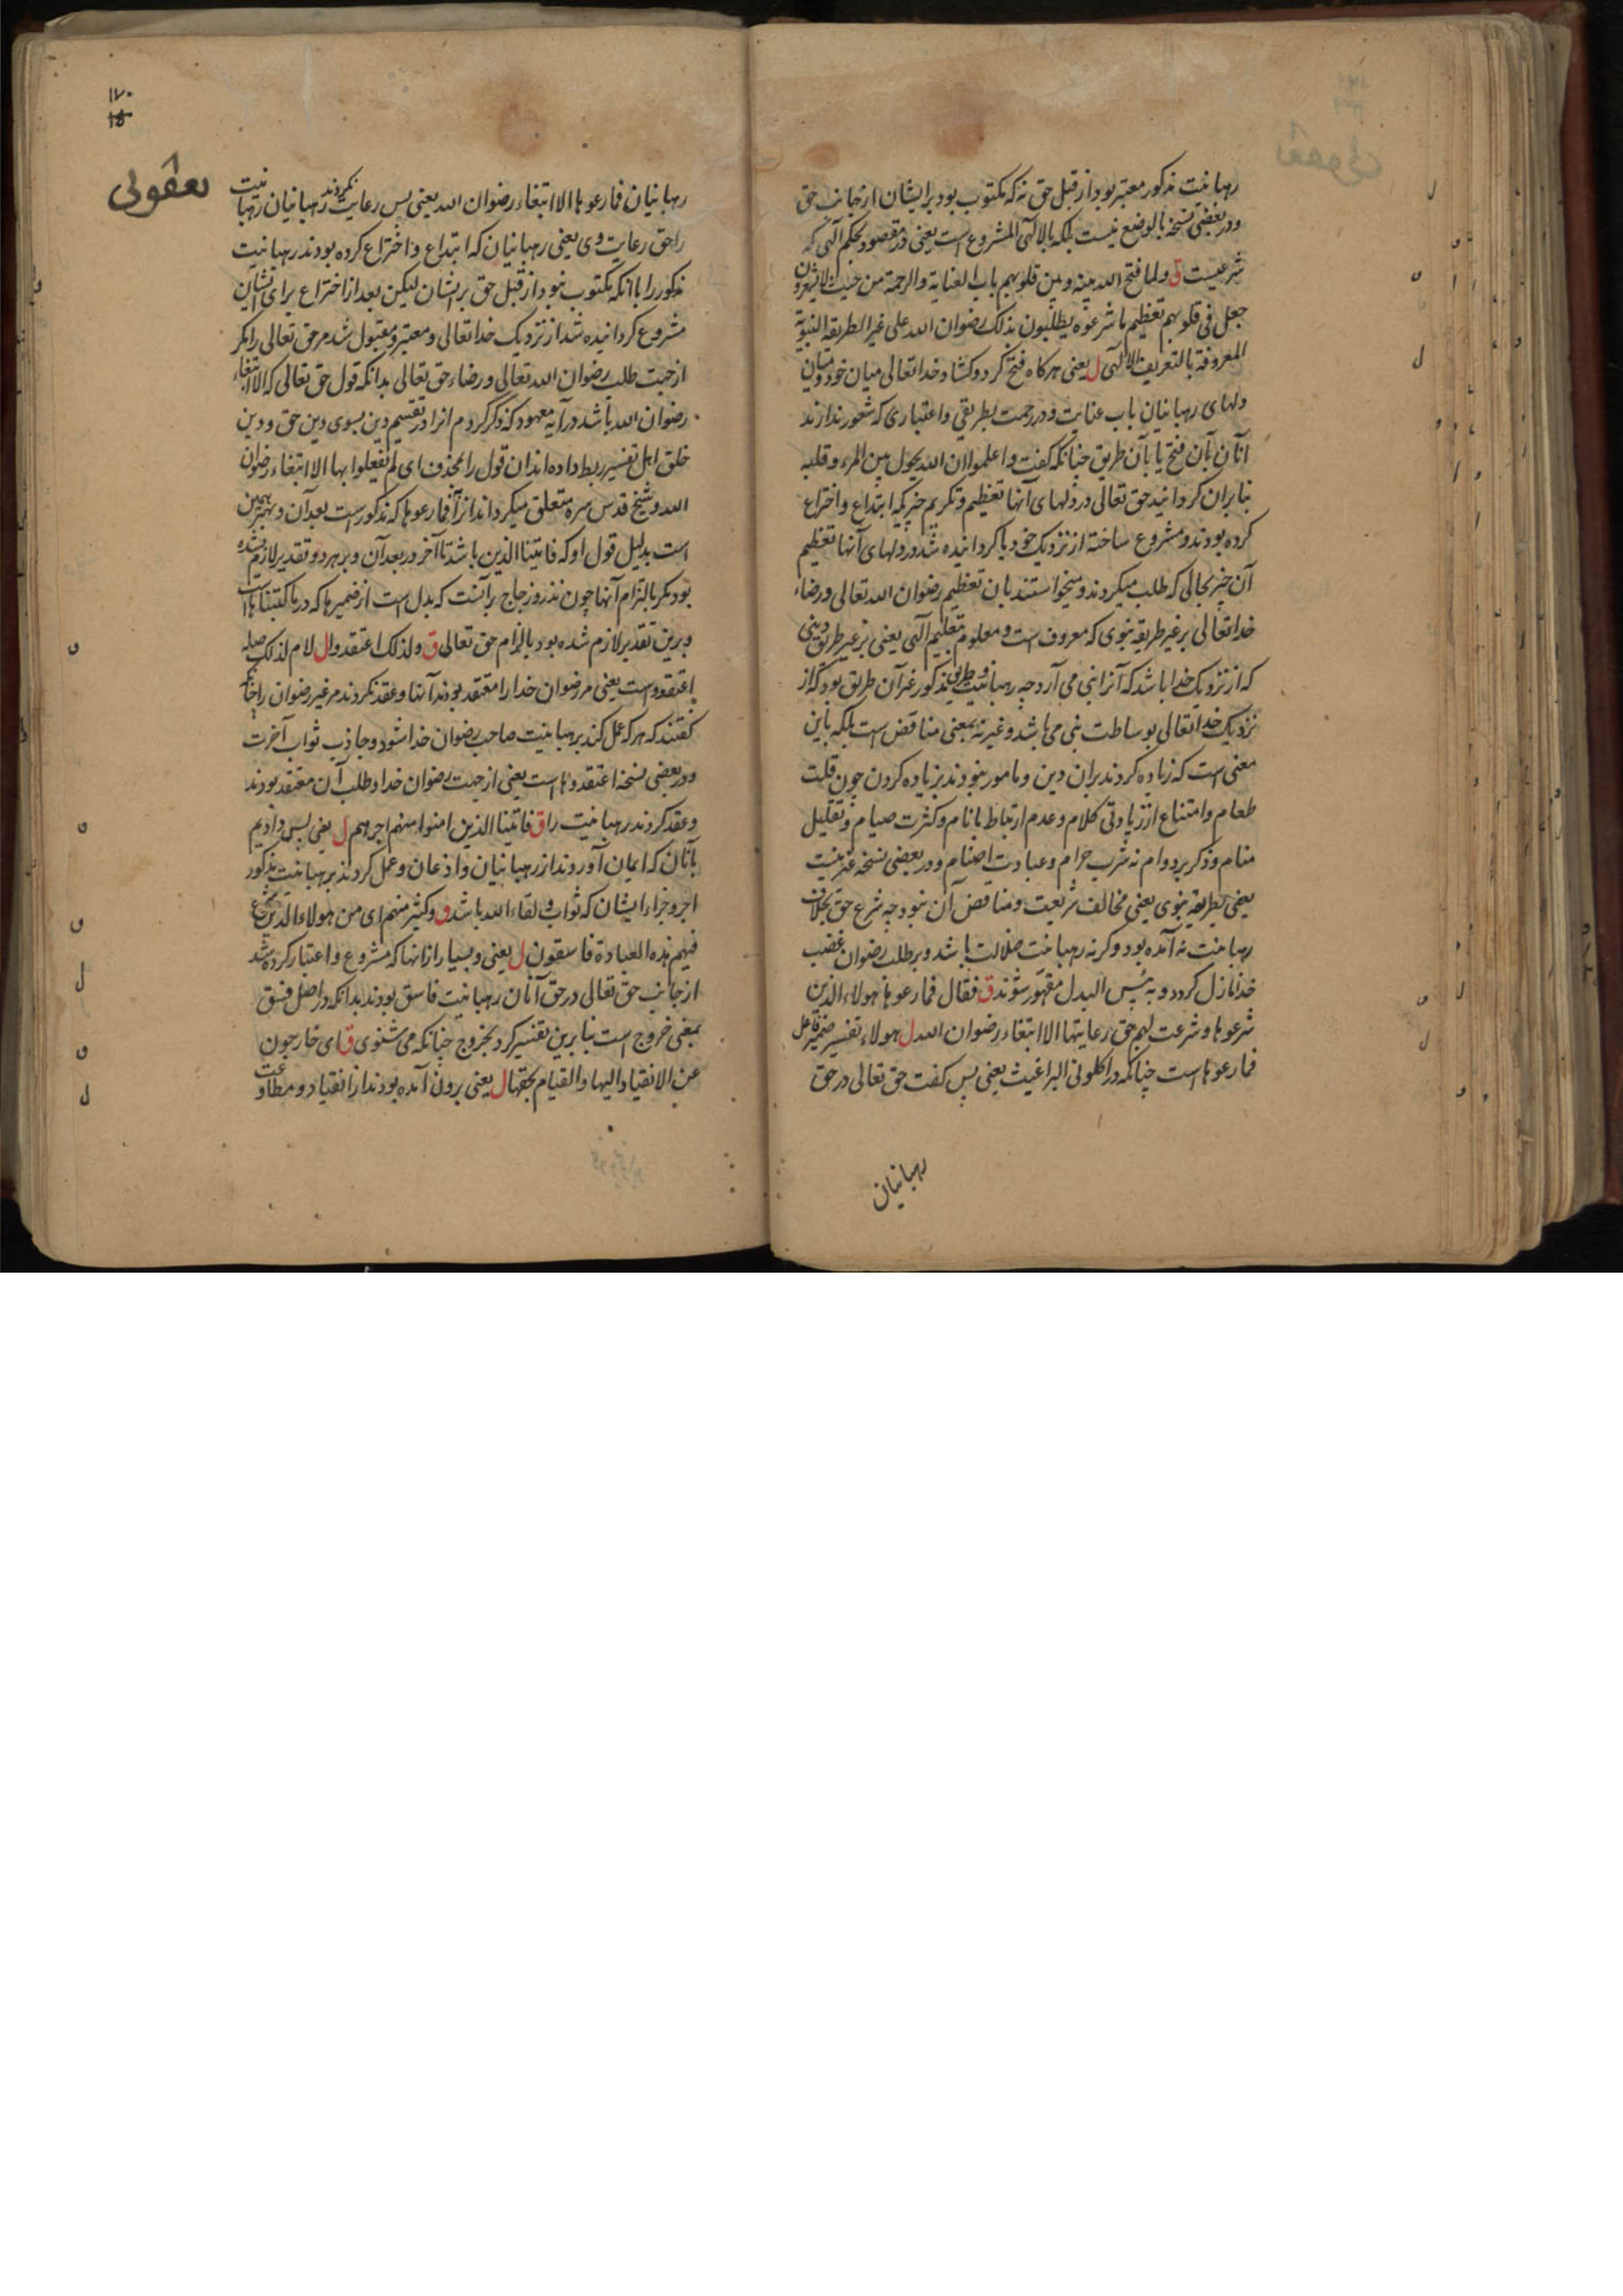 رهبانیت مذکور معتبر بود از قبل حق نه که مکتوب بود بر ایشان از جانب حق
ودر بعضی نسخه بالوضع نیست بلکه بالالهی المشروع است یعنی در مقصود بحکم الهی که
شرعیست ق ولما فتح الله بینه وبین قلوبهم باب العنایة والرحمة من حیث لا یشعرون
جعل فی قلوبهم تعظیم ما شرعوه یطلبون بذلک رضوان الله علی غیر الطریقة النبویة
المعروفة بالتعریف الالهی ل یعنی هرکاه فتح کرد وکشاد خداتعالی میان خود ومیان
دلهای رهبانیان باب عنایت ودر رحمت بطریقی واعتباری که شعور ندارند
آنان بآن فتح یا بآن طریق چنانکه کفت واعلموا ان الله یحول بین المرء وقلبه
بنابران کردانید حق تعالی در دلهای آنها تعظیم وتکریم چیزیکه ابتداع واختراع
کرده بودند ومشروع ساخته از نزدیک خود یا کردانیده شد در دلهای آنها تعظیم
آن چیز بحالی که طلب میکردند ومیخواستند بان تعظیم رضوان الله تعالی ورضاء
خداتعالی بر غیر طریقه نبوی که معروف است ومعلوم بتعلیم الهی یعنی بر غیر طریق دینی
که از نزدیک خدا باشد که آنرا نبی می آرد چه رهبانیت وطریق مذکور غیر آن طریق بود که از
نزدیک خداتعالی بوساطت نبی می باشد وغیر نه بمعنی مناقض است بلکه باین
معنی است که زیاده کردند بران دین ومامور نبودند بزیاده کردن چون قلت
طعام وامتناع از زیادتی کلام وعدم ارتباط بانام وکثرت صیام وتقلیل
منام وذکر بر دوام نه شرب حرام وعبادت اصنام ودر بعضی نسخه غیر نیست
یعنی بطریقه نبوی یعنی مخالف شریعت ومناقض آن نبود چه شرع حق بخلاف
رهبانیت نه آمده بود وکرنه رهبانیت ضلالت باشد وبر طلب رضوان غضب
خدا نازل کردد وبه بئس البدل مقهور شوند ق فقال فما رعوها هولاء الذین
شرعوها وشرعت لهم حق رعایتها الا ابتغاء رضوان الله ل هولاء تفسیر ضمیر فاعل
فما رعوها است چنانکه در اکلونی البراغیث یعنی پس کفت حق تعالی در حق
رهبانیان
۱۷۰
یعقوبی
رهبانیان فما رعوها الا ابتغاء رضوان الله یعنی پس رعایت نکردند رهبانیان رهبانیت
را حق رعایت وی یعنی رهبانیان که ابتداع واختراع کرده بودند رهبانیت
مذکور را با انکه مکتوب نبود از قبل حق بر ایشان لیکن بعد از اختراع برای ایشان
مشروع کردانیده شد از نزدیک خداتعالی ومعتبر ومقبول شد مر حق تعالی را مکر
از جهت طلب رضوان الله تعالی ورضاء حق تعالی بدانکه قول حق تعالی که الا ابتغاء
رضوان الله باشد در آیه معهود که ذکر کردم انرا در تقسیم دین بسوی دین حق ودین
خلق اهل تفسیر ربط داده اند ان قول را بمحذوف ای لم یفعلوا بها الا ابتغاء رضوان
الله وشیخ قدس سره متعلق میکرداند آنرا از فما رعوها که مذکور است بعد آن وبهتر همین
است بدلیل قول او که فاتینا الذین باشد تا آخر در بعد آن وبر هر دو تقدیر لازم نشده
بود مکر بالتزام آنها چون نذر وزجاج بر آنست که بدل است از ضمیر ها که در ما کتبناها است
وبرین تقدیر لازم شده بود بالزام حق تعالی ق ولذلک اعتقدوا ل لام لذلک صله
اعتقدوا است یعنی مر رضوان خدا را معتقد بودند آنها وعقد نکردند مر غیر رضوان را چنانکه
کفتند که هرکه عمل کند برهبانیت صاحب رضوان خدا شود وجاذب ثواب آخرت
ودر بعضی نسخه اعتقدوها است یعنی از جهت رضوان خدا وطلب آن معتقد بودند
وعقد کردند رهبانیت را ق فاتینا الذین امنوا منهم اجرهم ل یعنی پس دادیم
بآنان که ایمان آوردند از رهبانیان واذعان وعمل کردند برهبانیت مذکور
اجر وجزاء ایشان که ثواب ولقاء الله باشد ق وکثیر منهم ای من هولاء الذین شرع
فیهم هذه العبادة فاسقون ل یعنی وبسیار از انها که مشروع واعتبار کرده شد
از جانب حق تعالی در حق آنان رهبانیت فاسق بودند بدانکه در اصل فسق
بمعنی خروج است بنابرین تفسیر کرد بخروج چنانکه می شنوی ق ای خارجون
عن الانقیاد الیها والقیام بحقها ل یعنی برون آمده بودند از انقیاد ومطاوعت